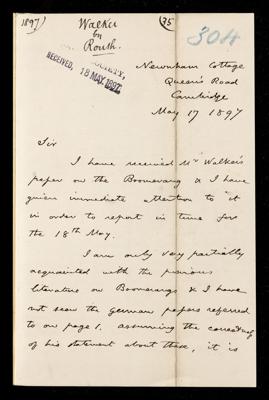 1897
Walker
on
Routh.
35
304
SOCIETY,
RECEIVED, 18 MAY 1897
Newnham Cottage
Queen's Road
Cambridge
May 17 1897
Sir
I have received Mr Walker's
paper on the Boomerang & I have
given immediate attention to it
in order to report in time for
the 18th May.
I am only very partially
acquainted with the previous
literature on Boomerangs & I have
not seen the German papers referred
to on page 1. Assuming the correctness
of his statement about these, it is